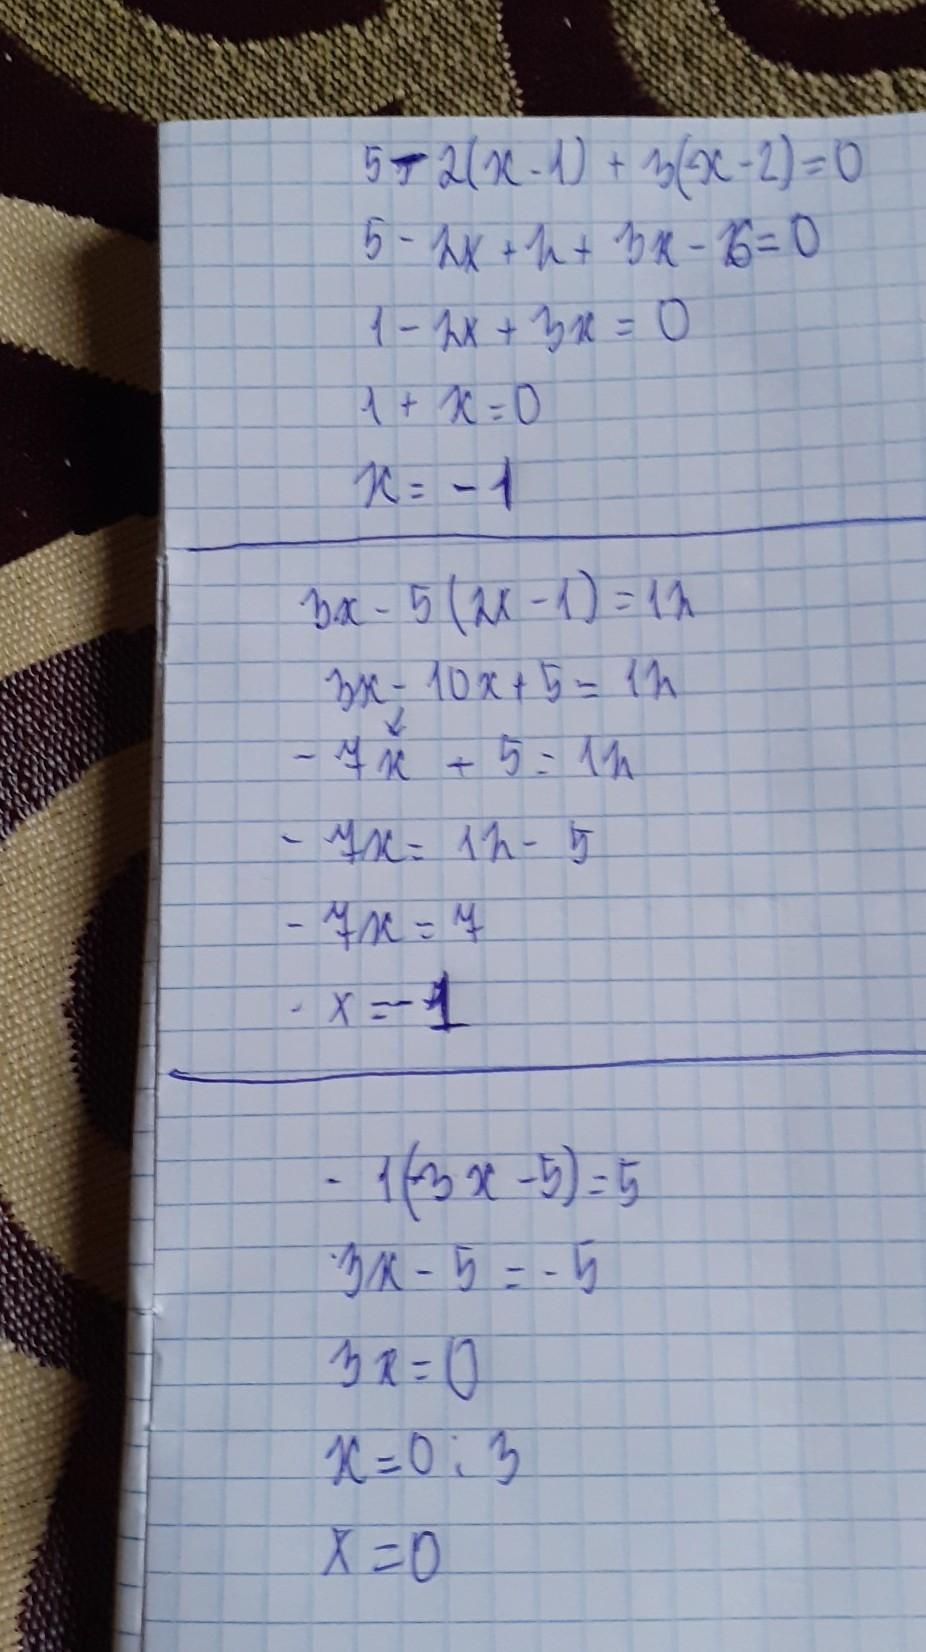 5-2(x-1) + 3(x-2)=0
5 - 2x + 2 + 3x - 6=0
1 - 2x + 3x = 0
1 + x = 0
x = - 1
3x - 5(2x-1) = 12
3x - 10x + 5 = 12
- 7x + 5 = 12
- 7x = 12 - 5
- 7x = 7
- x = -1
- 1(3x-5)=5
3x - 5 = - 5
3x = 0
x = 0 : 3
x = 0